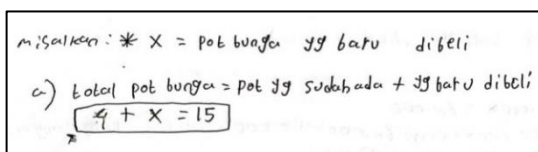 misalkan: * x = pot bunga yg baru dibeli
a) total pot bunga = pot yg sudah ada + yg baru dibeli
4 + x = 15